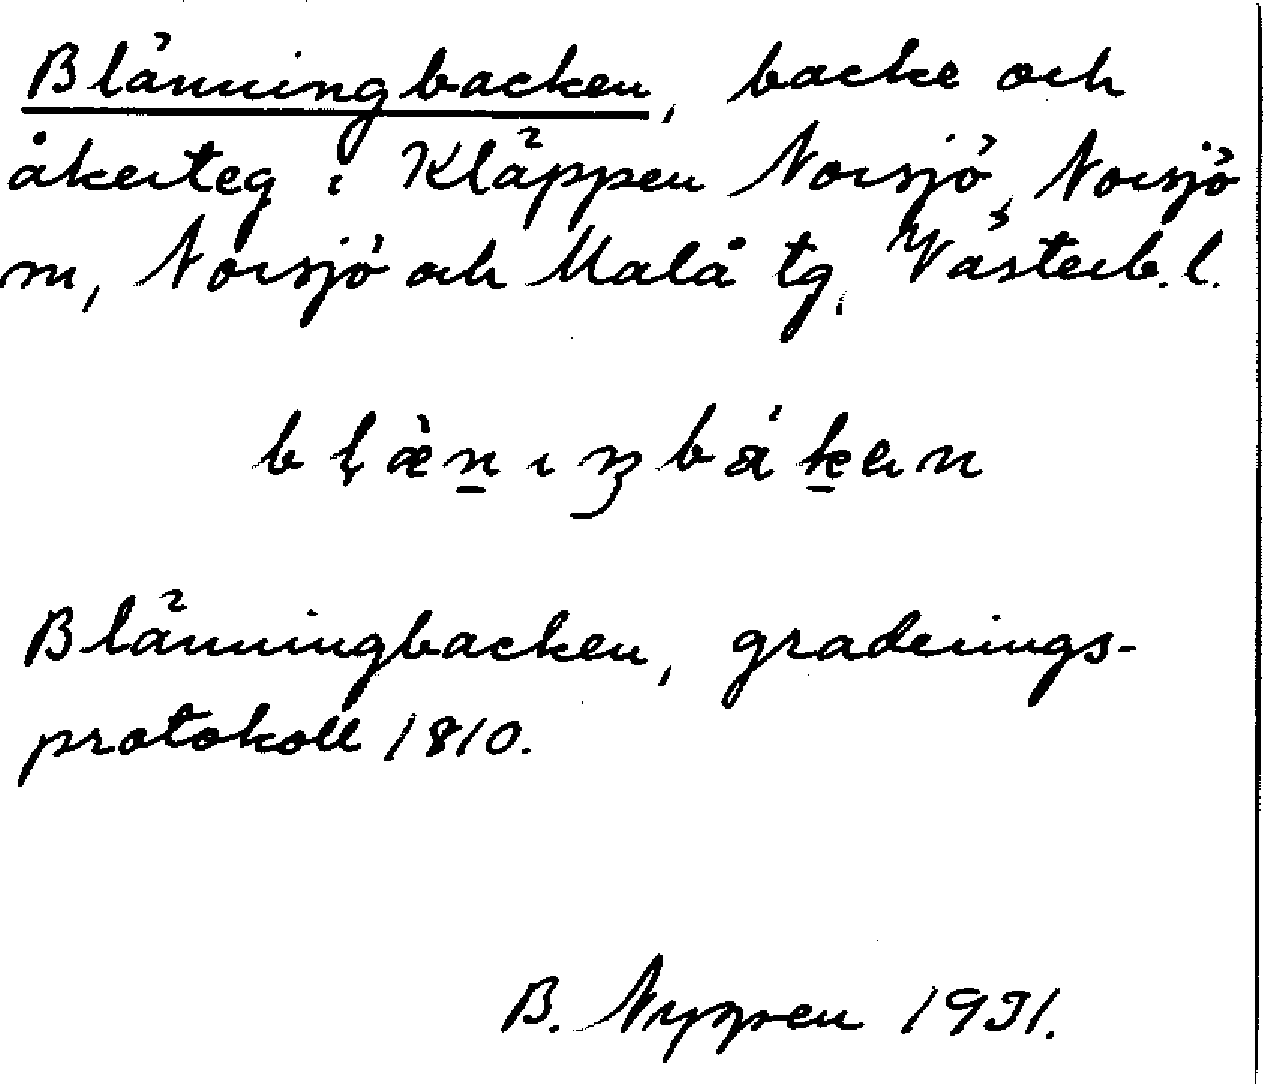 Blänningbacken, backe och
åkerteg i Kläppen Norsjö, Norsjö
sn, Norsjö och Malå tg, Västerb. l.
bḷæ̀n̠ıŋbák̠en
Blänningbacken, graderings-
protokoll 1810.
B. Nygren 1931.